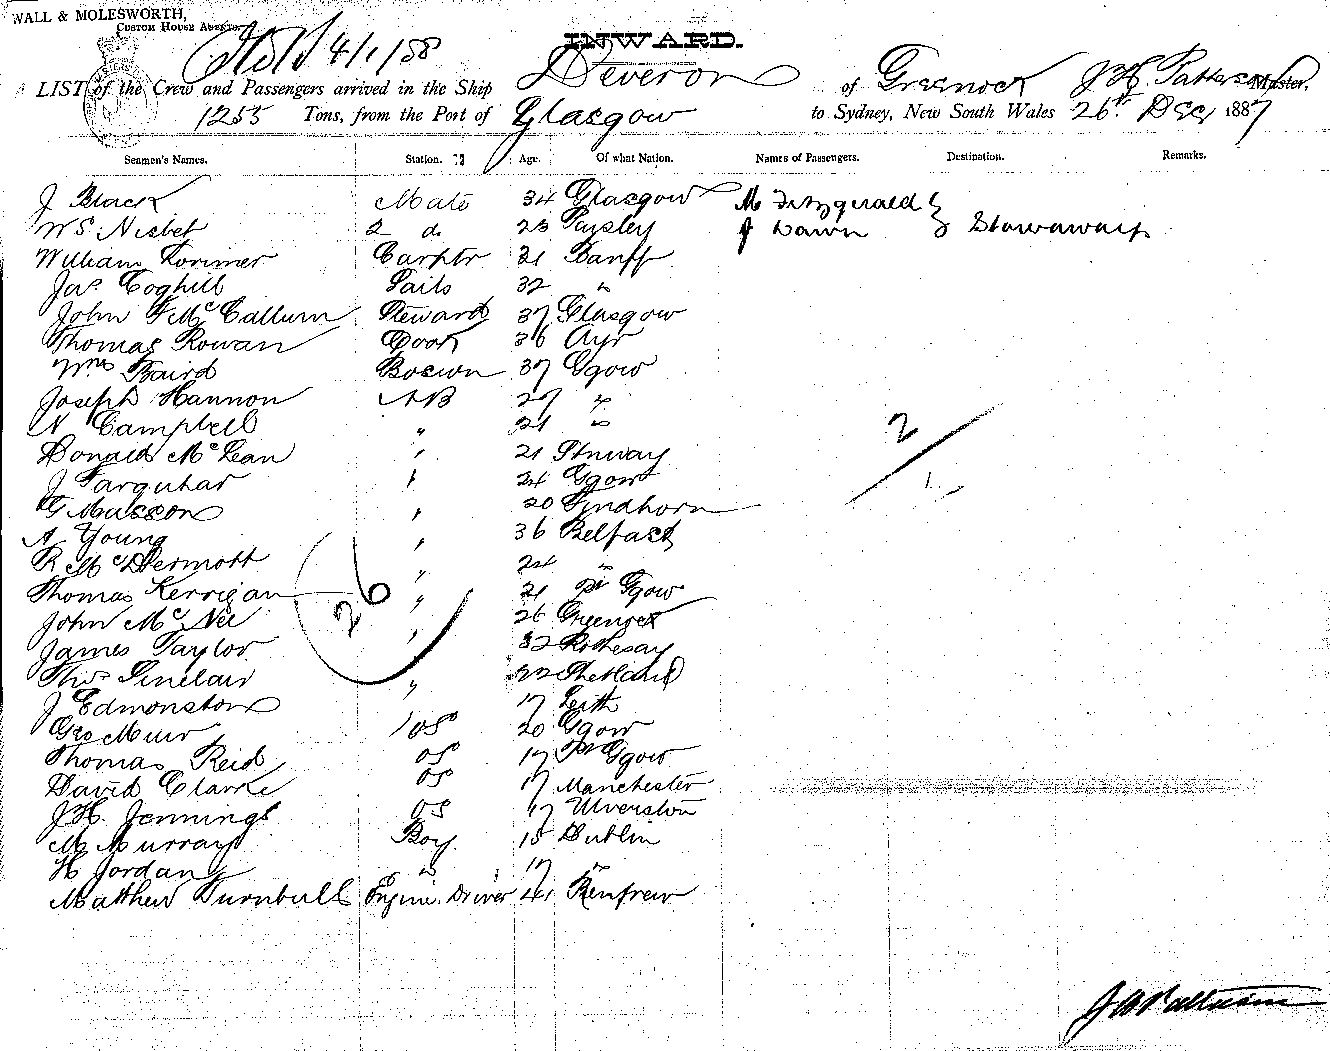 WALL & MOLESWORTH,
CUSTOM HOUSE AGENTS.
4/1/88
INWARD.
LIST of the Crew and Passengers arrived in the Ship Deveron of Greenock J H Patterson Master,
1255 Tons, from the Port of Glasgow to Sydney, New South Wales 26th Dec 1887
Seamen's Names. Station. Age. Of what Nation. Names of Passengers. Destination. Remarks.
J Black Mate 34 Glasgow M Fitzgerald }
W S Nisbet 2 do 23 Paisley J Dawn } Stowaways
William Lorimer Carptr 31 Banff
Jas Coghill Sails 32 "
John F McCallum Steward 37 Glasgow
Thomas Rowan Cook 36 Ayr
Wm Baird Boswn 37 Ggow
Joseph Hannon AB 27 "
N Campbell " 21 "
Donald McLean " 21 Stnway
J Farquhar " 24 Ggow
G Musson " 20 Findhorn
A Young " 36 Belfast
R McDermott " 24 "
Thomas Kerrigan " 21 Pt Ggow
John McNee " 26 Greenock
James Taylor " 32 Rothesay
Thos Sinclair " 22 Shetland
J Edmonston 17 Leith
Geo Muir OS 20 Ggow
Thomas Reid OS 17 Pt Ggow
David Clarke OS 17 Manchester
J H Jennings OS 17 Ulverston
M Murray Boy 15 Dublin
H Jordan " 17 "
Matthew Turnbull Engine Driver 41 Renfrew
26
2
1